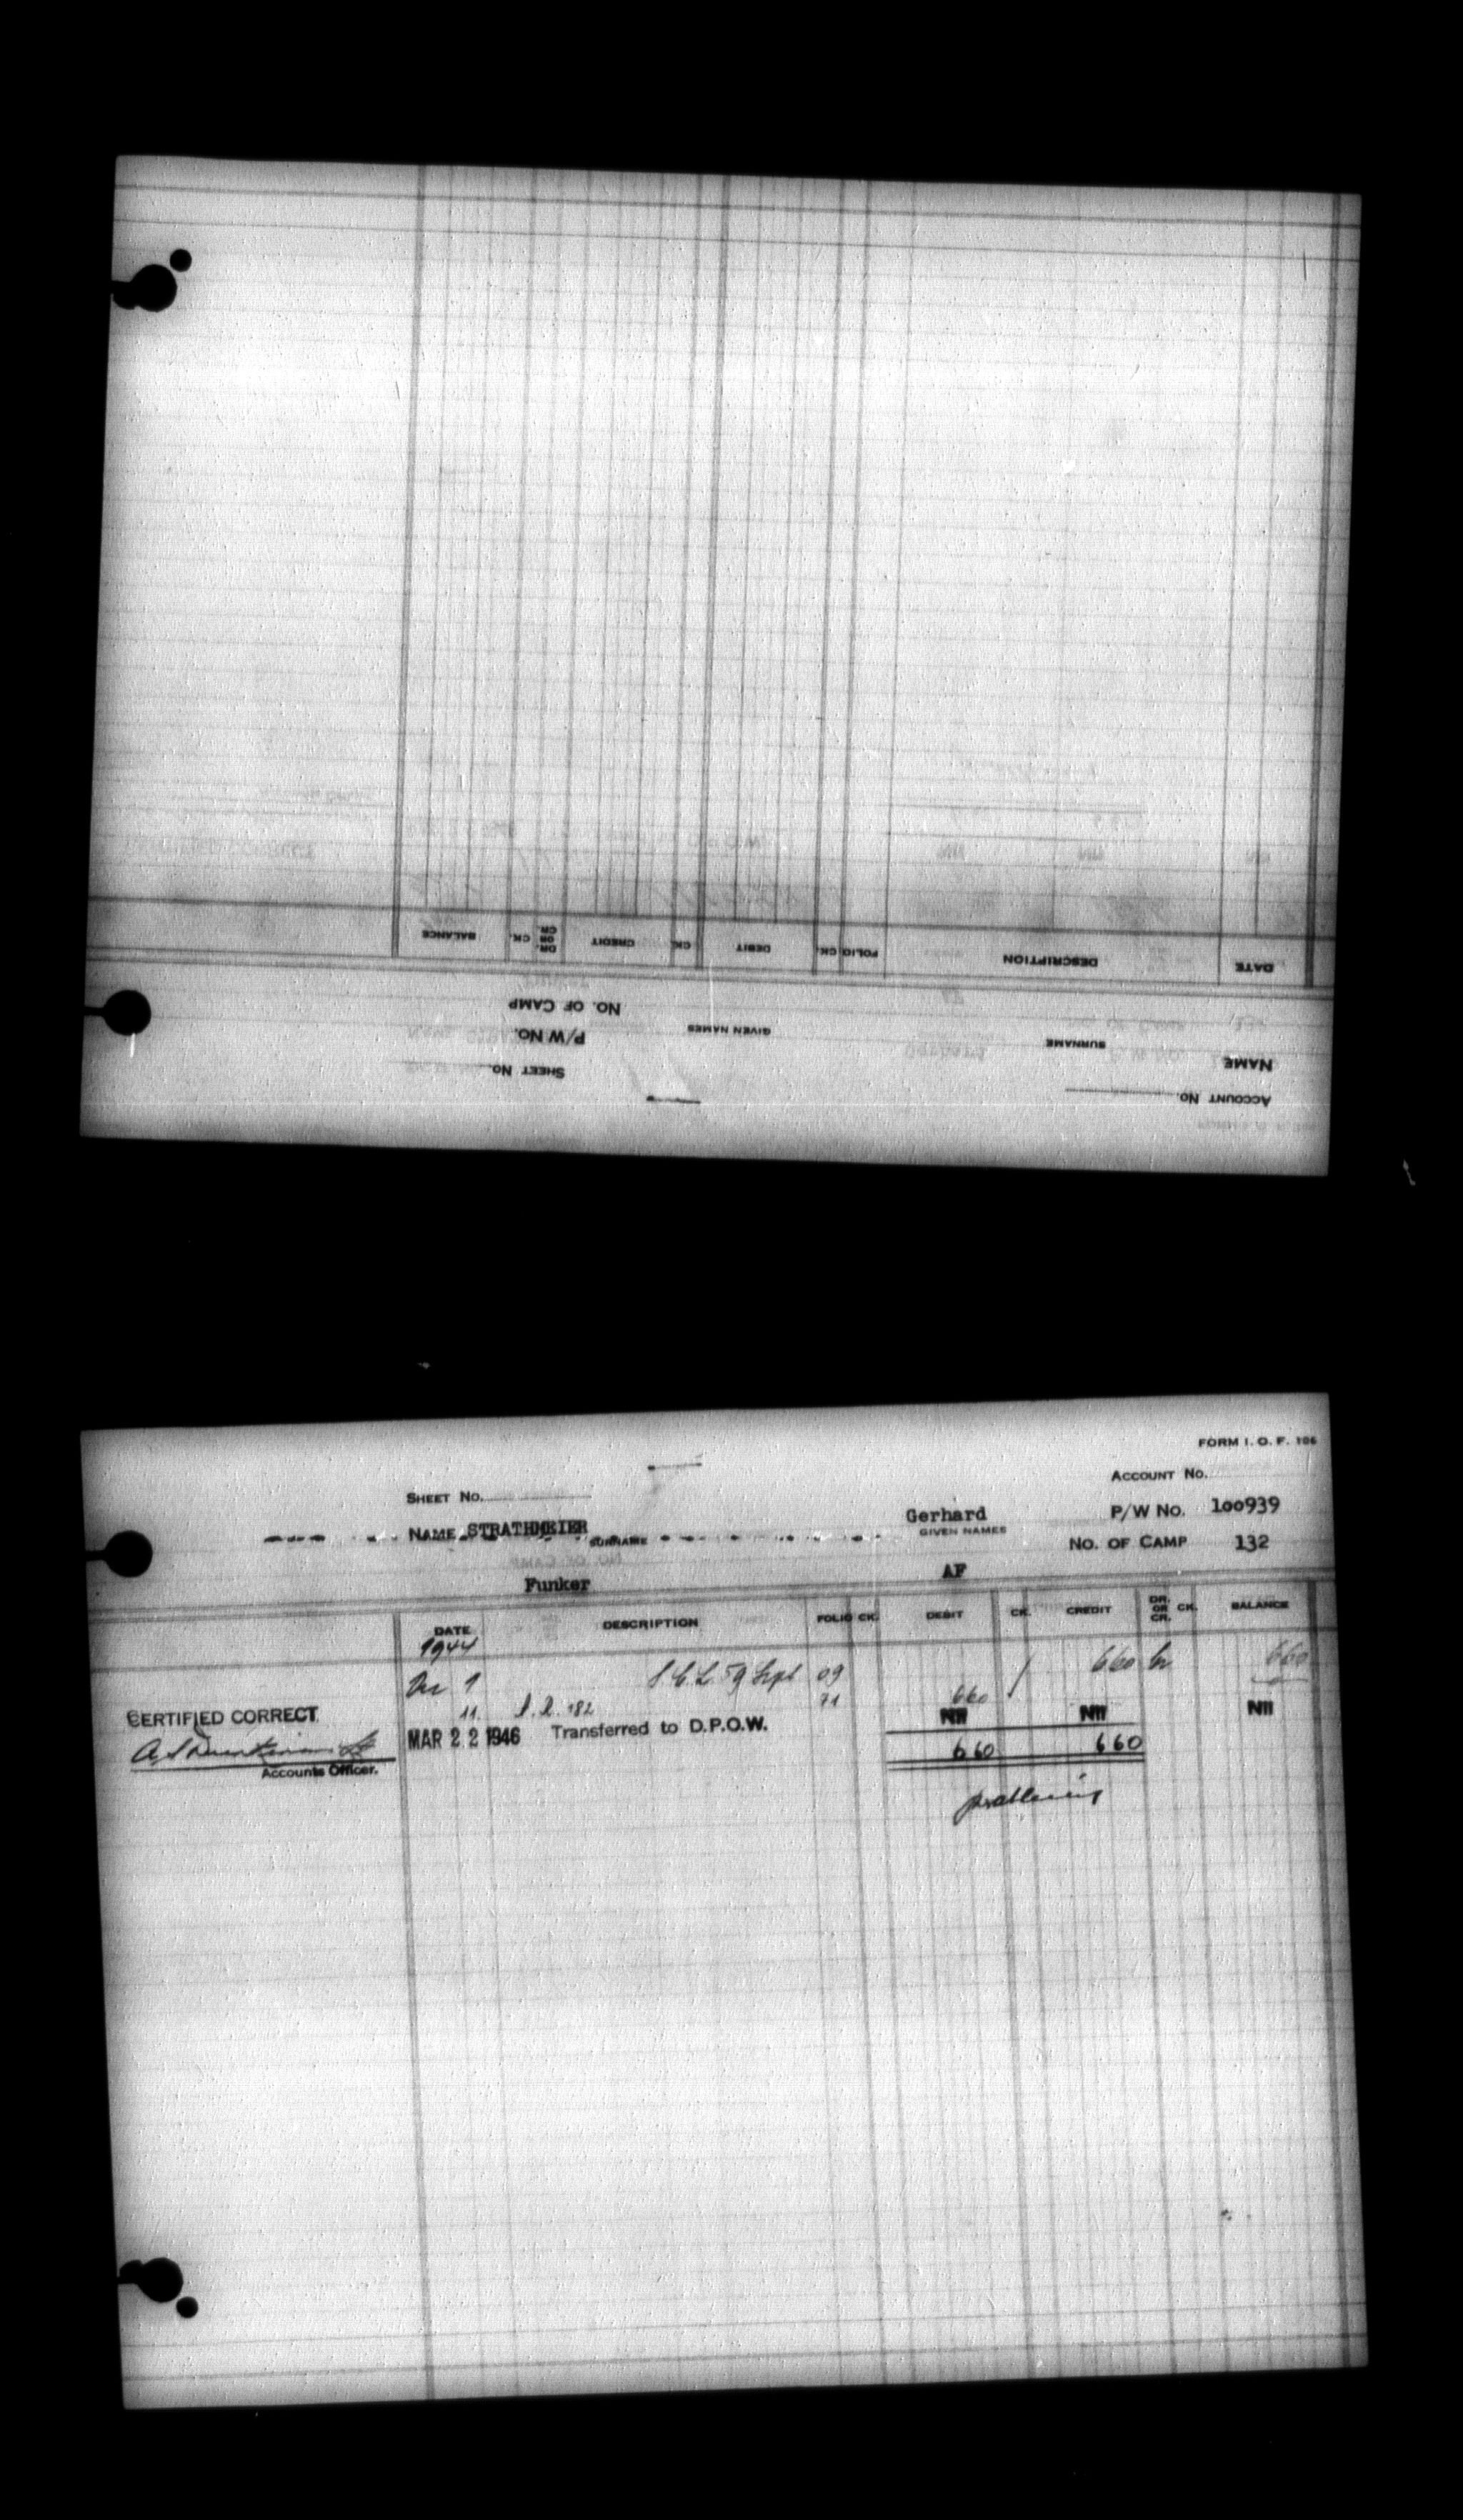 ACCOUNT No.
SHEET No.
NAME
SURNAME
GIVEN NAMES
P/W No.
No. OF CAMP
DATE DESCRIPTION FOLIO CK. DEBIT CK. CREDIT DR. OR CR. CK. BALANCE
FORM I. O. F. 106
SHEET No. ACCOUNT No.
NAME STRATHMEIER Gerhard P/W No. 100939
SURNAME GIVEN NAMES
No. OF CAMP 132
Funker AF
DATE DESCRIPTION FOLIO CK. DEBIT CK. CREDIT DR. OR CR. CK. BALANCE
1944
59 Sept 09 660 Cr 660
11 182 71 660
CERTIFIED CORRECT Nil Nil Nil
MAR 22 1946 Transferred to D.P.O.W.
660 660
Accounts Officer.